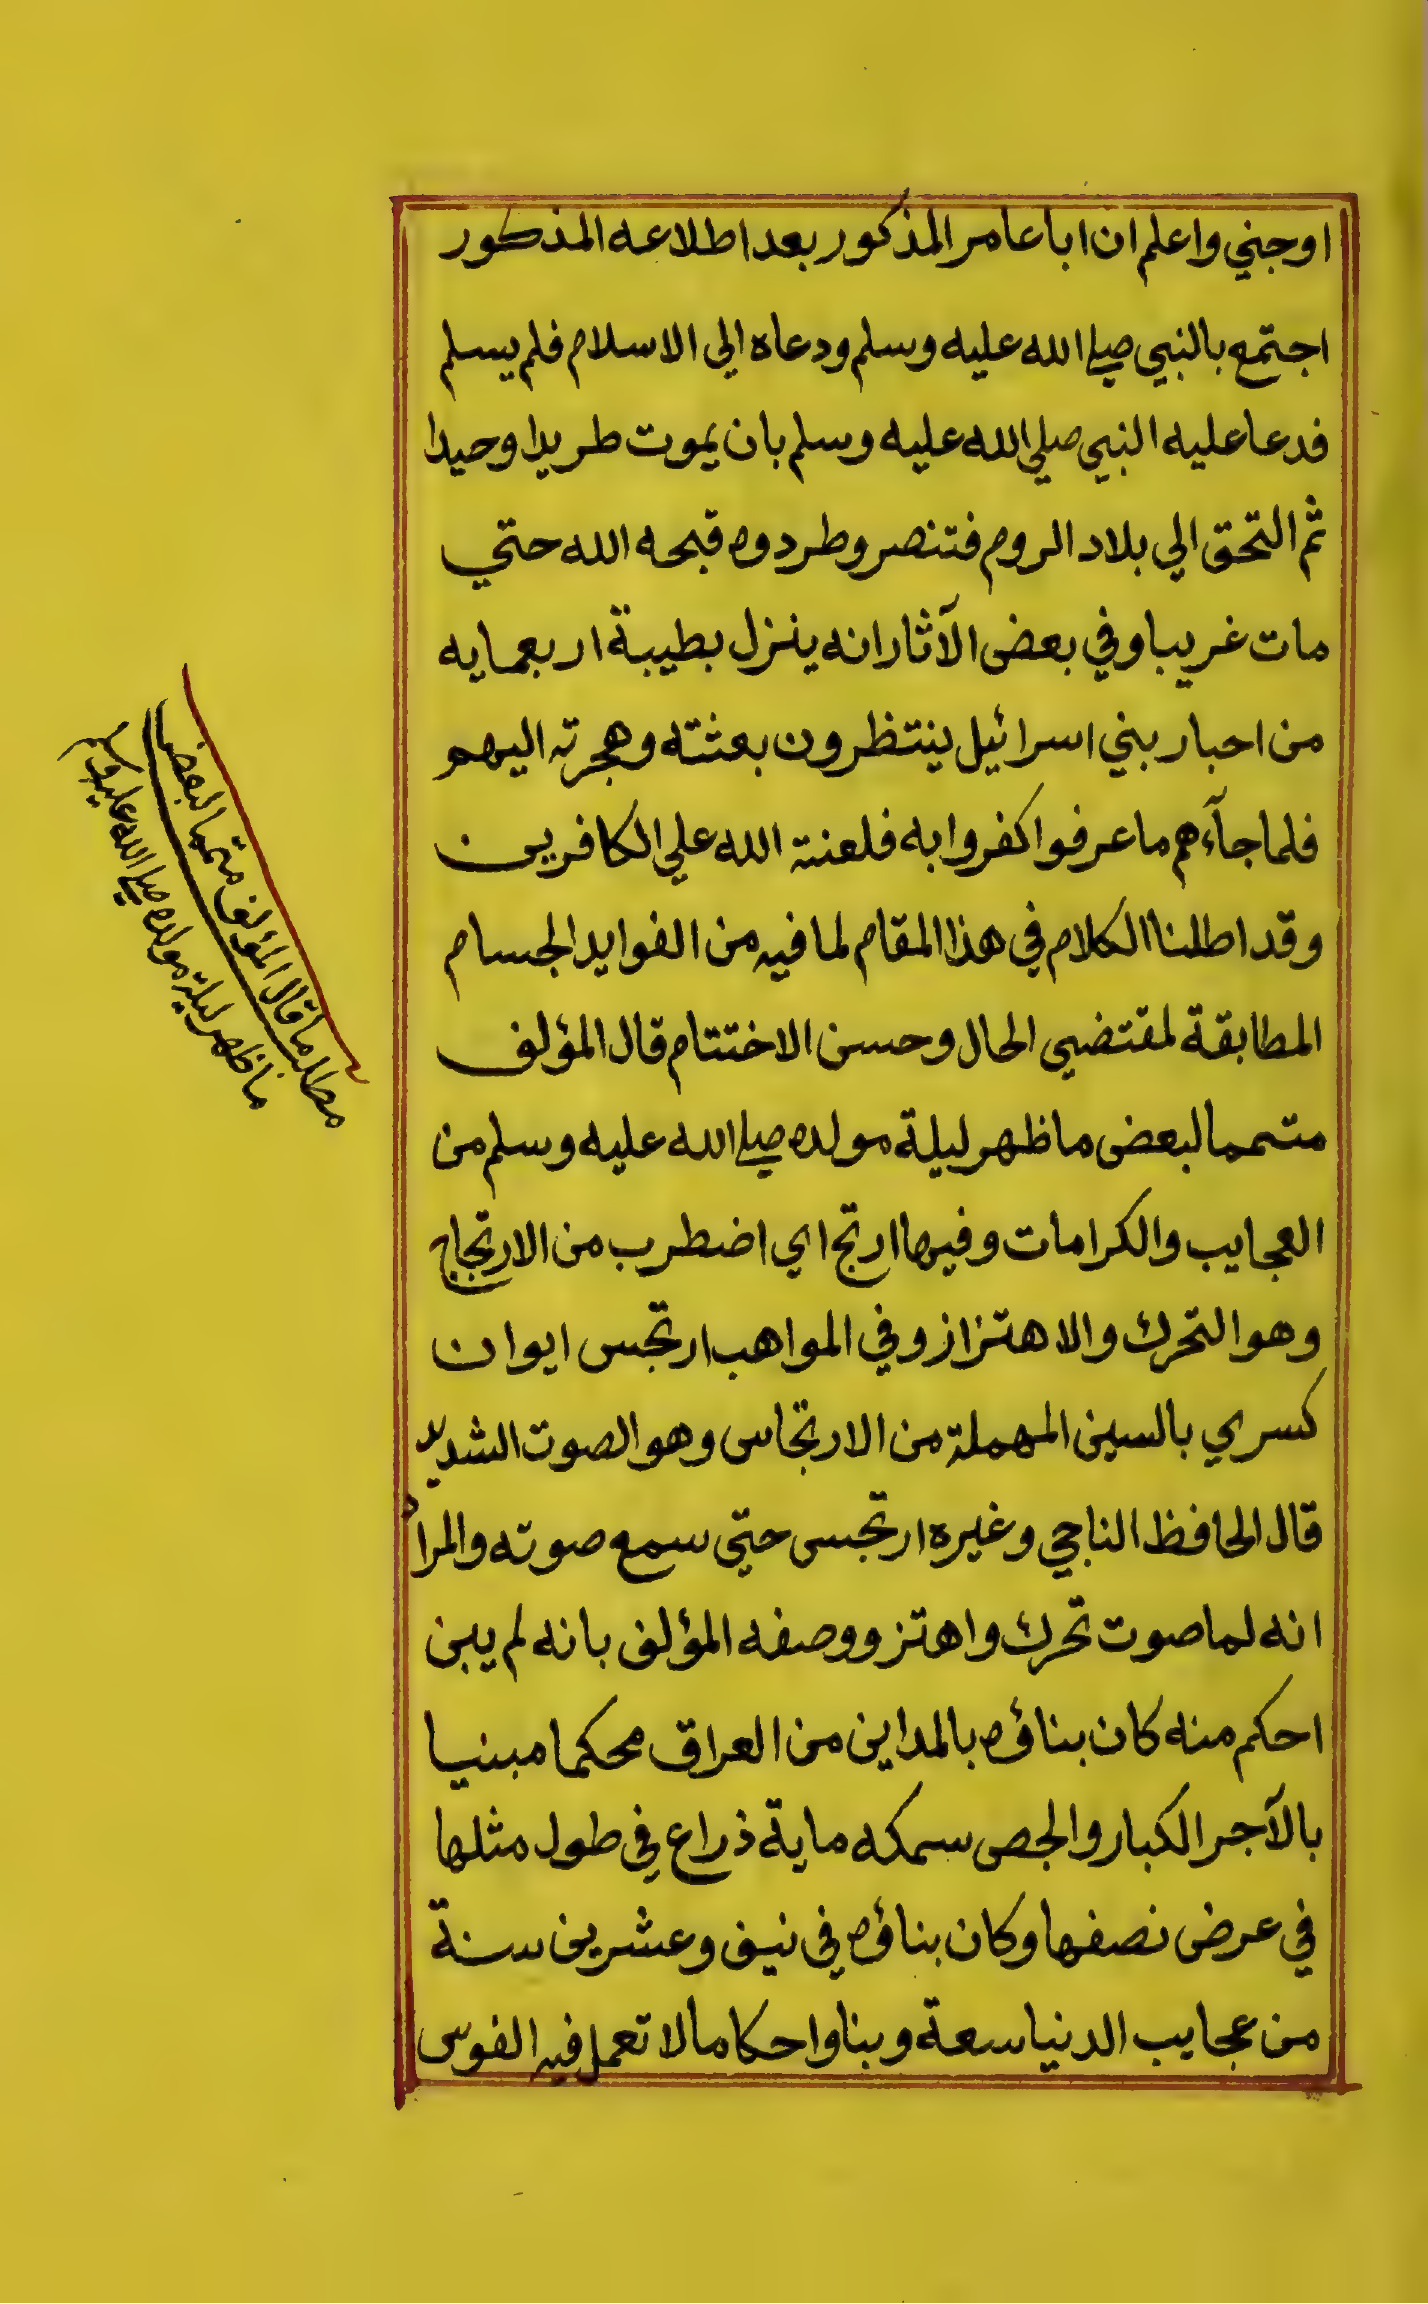 اوجني واعلم ان ابا عامر المذكور بعد اطلاعه المذكور
اجتمع بالنبي صلي الله عليه وسلم ودعاه الي الاسلام فلم يسلم
فدعا عليه النبي صلي الله عليه وسلم بان يموت طريدا وحيدا
ثم التحق الي بلاد الروم فتنصر وطردوه قبحه الله حتي
مات غريبا وفي بعض الآثار انه ينزل بطيبة اربعمايه
من احبار بني اسرائيل ينتظرون بعثته وهجرته اليهم
فلما جآءهم ما عرفوا كفروا به فلعنة الله علي الكافرين
وقد اطلنا الكلام في هذا المقام لما فيه من الفوايد الجسام
المطابقة لمقتضي الحال وحسن الاختتام قال المؤلف
متمما لبعض ما ظهر ليلة مولده صلي الله عليه وسلم من
العجايب والكرامات وفيها ارتج اي اضطرب من الارتجاج
وهو التحرك والاهتزاز وفي المواهب ارتجس ايوان
كسري بالسين المهملة من الارتجاس وهو الصوت الشديد
قال الحافظ الناجي وغيره ارتجس حتي سمع صوته والمراد
انه لما صوت تحرك واهتز ووصفه المؤلف بانه لم يبن
احكم منه كان بناؤه بالمداين من العراق محكما مبنيا
بالآجر الكبار والجص سمكه ماية ذراع في طول مثلها
في عرض نصفها وكان بناؤه في نيف وعشرين سنة
من عجايب الدنيا سعة وبنا واحكاما لا تعمل فيه الفوس
مطلب ما قال المؤلف متمما لبعض
ما ظهر ليلة مولده صلي الله عليه وسلم